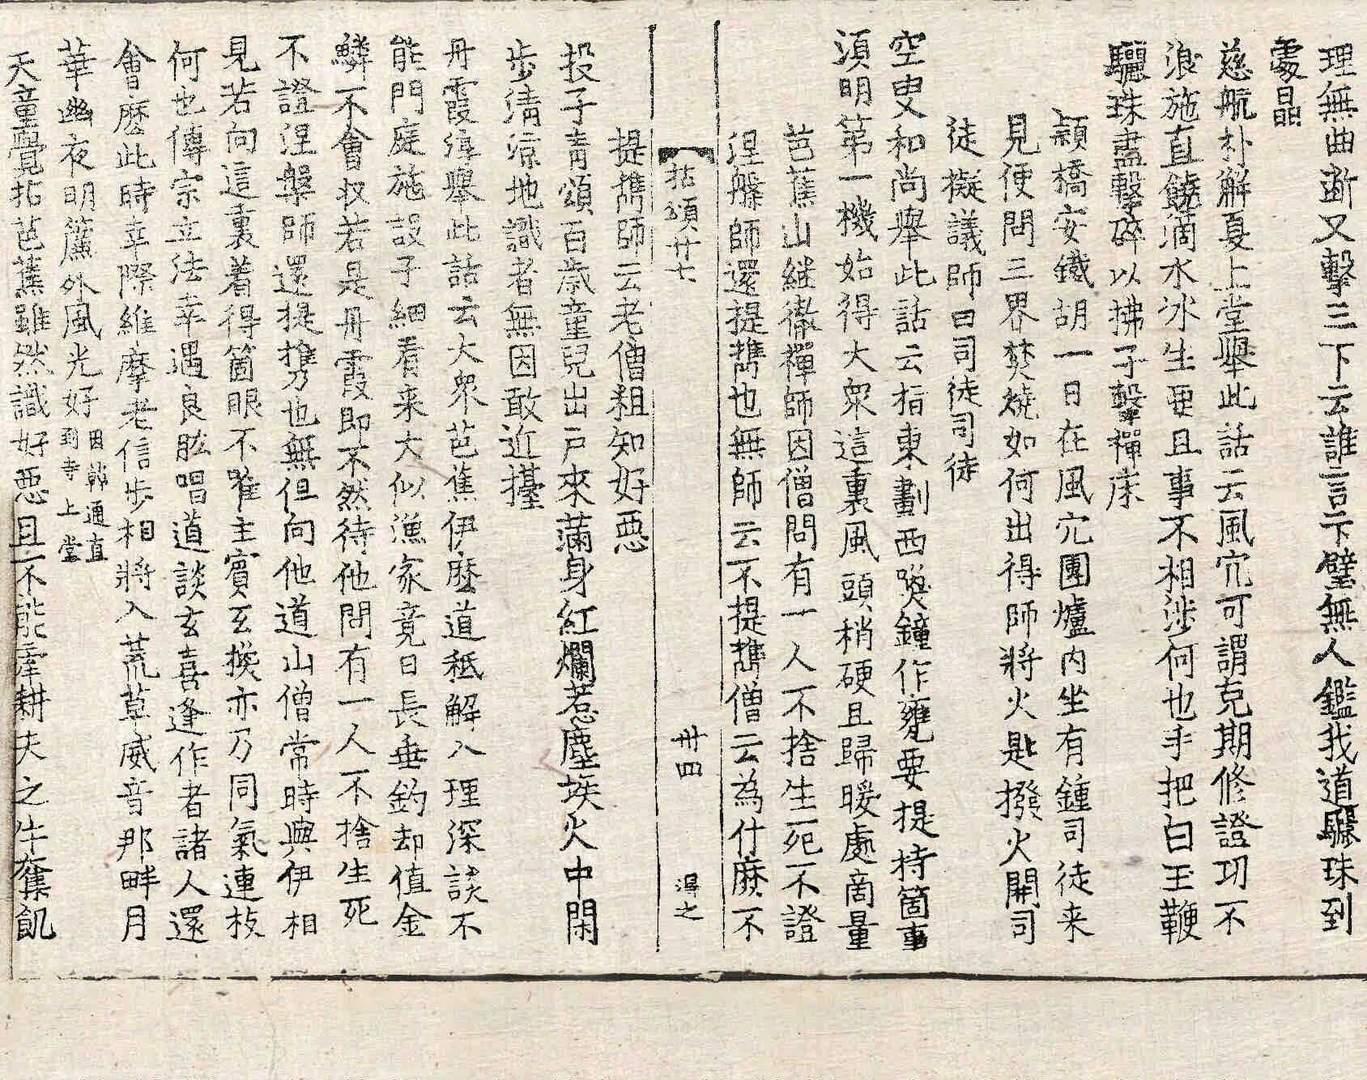 理無曲断又擊三下云誰言下璧無人鑑我道驪珠到
處晶
慈航朴解夏上堂舉此話云風穴可謂克期修證功不
浪施直饒滴水氷生要且事不相涉何也手把白玉鞭
驪珠盡擊碎以拂子擊禪床
頴橋安鐵胡一日在風穴圍爐内坐有鍾司徒来
見便問三界焚燒如何出得師將火匙撥火開司
徒擬議師曰司徒司徒
空叟和尚舉此話云指東劃西喚鐘作甕要提持箇事
湏明第一機始得大衆這裏風頭稍硬且歸暖處商量
芭蕉山継徹禪師因僧問有一人不捨生死不證
涅槃師還提携也無師云不提携僧云為什麽不
拈頌廿七 卅四 淂之
提携師云老僧粗知好惡
投子青頌百歲童兒出戸來滿身紅爛惹塵埃火中閑
步清涼地識者無因敢近擡
丹霞淳舉此話云大衆芭蕉伊麽道秪解入理深談不
能門庭施設子細看来大似漁家竟日長垂釣却值金
鱗不會収若是丹霞即不然待他問有一人不捨生死
不證涅槃師還提携也無但向他道山僧常時與伊相
見若向這裏着得箇眼不唯主賓互換亦乃同氣連枝
何也傳宗立法幸遇良肱唱道談玄喜逢作者諸人還
會麽此時幸際維摩老信步相將入荒草威音那畔月
華幽夜明簾外風光好因韓通直到寺上堂
天童覺拈芭蕉雖然識好惡且不能牽耕夫之牛奪飢